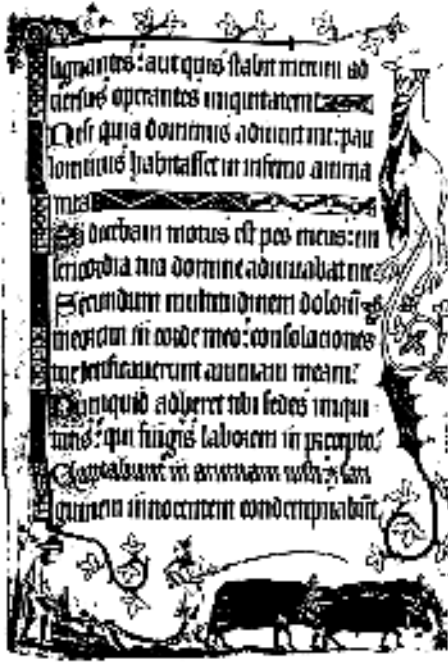 lignantes: aut quis stabit mecum ad
uersus operantes iniquitatem
Nisi quia dominus adiuuit me: pau
lominus habitasset in inferno anima
mea
Si dicebam motus est pes meus: mi
sericordia tua domine adiuuabat me
Secundum multitudinem dolorū
meorum in corde meo: consolaciones
tue letificauerunt animam meam:
Nunquid adheret tibi sedes iniqui
tatis: qui fingis laborem in precepto:
Captabunt in animam iusti: ⁊ san
guinem innocentem condempnabūt